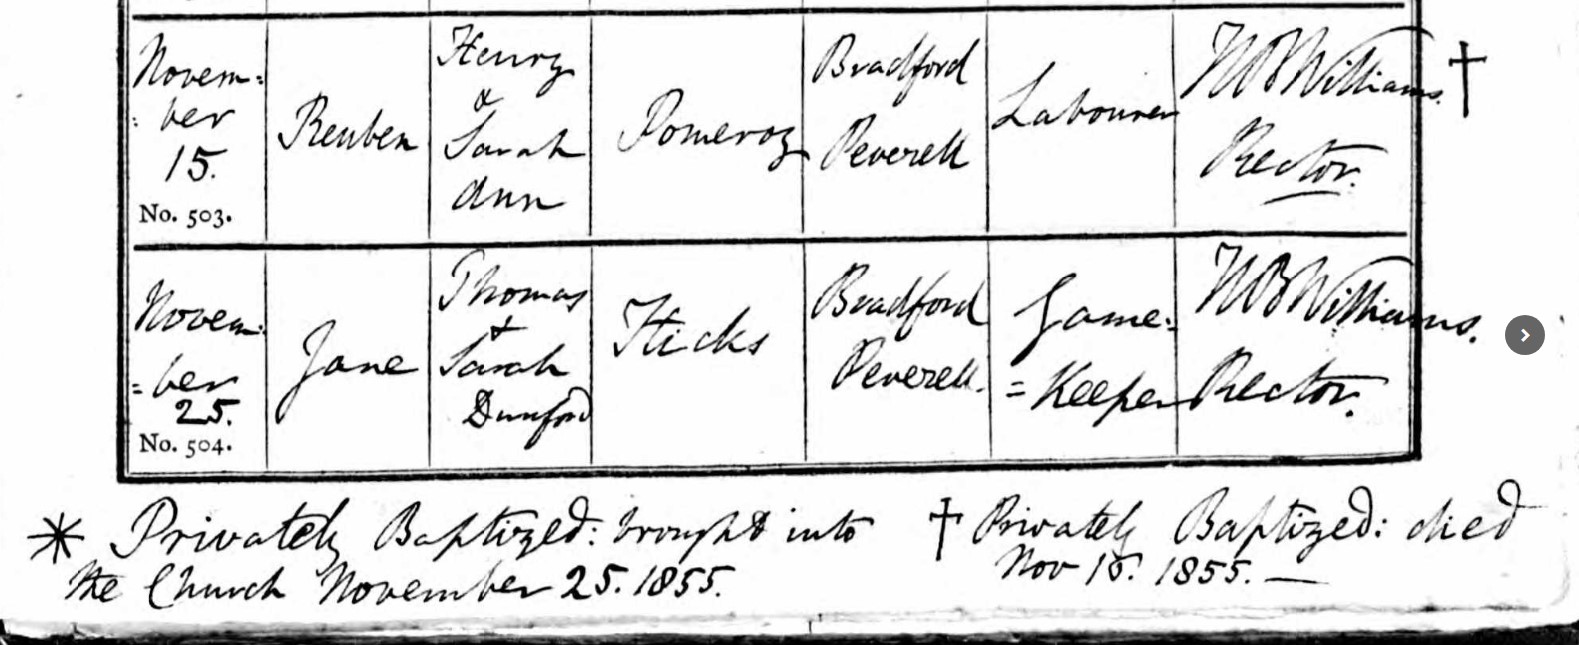 Novem:
: ber
15.
No. 503.
Reuben
Henry
&
Sarah
Ann
Pomeroy
Bradford
Peverell
Labourer
WBWilliams. †
Rector.
Novem:
= ber
25.
No. 504.
Jane
Thomas
&
Sarah
Dunford
Hicks
Bradford
Peverell.
Game:
= Keeper
WBWilliams.
Rector.
* Privately Baptized: brought into
the Church November 25. 1855.
† Privately Baptized: died
Nov 1855. —